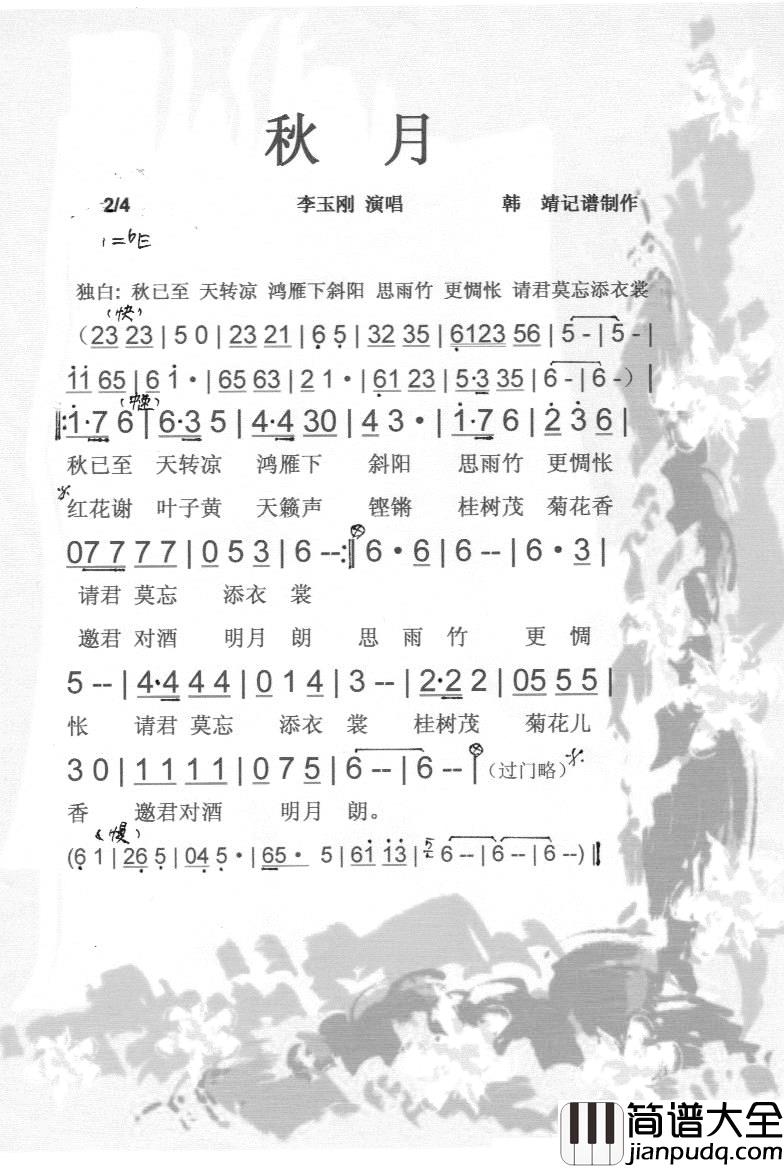 秋 月
2/4 李玉刚 演唱 韩 靖记谱制作
1=♭E
独白: 秋已至 天转凉 鸿雁下斜阳 思雨竹 更惆怅 请君莫忘添衣裳
(快)
(23 23 | 5 0 | 23 21 | 6 5 | 32 35 | 6123 56 | 5 - | 5 - |
11 65 | 6 1· | 65 63 | 2 1· | 61 23 | 5·3 35 | 6 - | 6 - ) |
(中速)
‖: 1·7 6 | 6·3 5 | 4·4 30 | 4 3· | 1·7 6 | 2 3 6 |
秋已至 天转凉 鸿雁下 斜阳 思雨竹 更惆怅
红花谢 叶子黄 天籁声 铿锵 桂树茂 菊花香
07 7 7 7 | 0 5 3 | 6 -- :‖ 6 · 6 | 6 -- | 6 · 3 |
请君 莫忘 添衣 裳
邀君 对酒 明月 朗 思 雨 竹 更 惆
5 -- | 4·4 4 4 | 0 1 4 | 3 -- | 2·2 2 | 05 5 5 |
怅 请君 莫忘 添衣 裳 桂树茂 菊花儿
3 0 | 1 1 1 1 | 0 7 5 | 6 -- | 6 -- | (过门略)
香 邀君对酒 明月 朗。
(慢)
(6 1 | 26 5 | 04 5 · | 65· 5 | 61 13 | 6 -- | 6 -- | 6 --) ‖
简谱大全
jianpudq.com